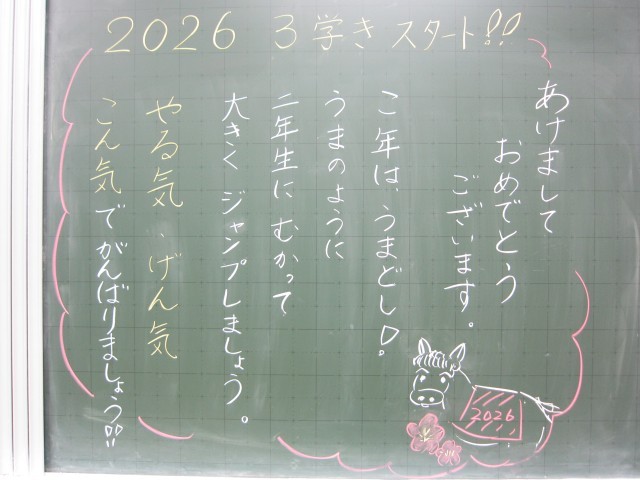 2026 3学き スタート!!
あけまして
おめでとう
ございます。
こ年は、うまどし!
うまのように
二年生に むかって
大きく ジャンプしましょう。
やる気、げん気
こん気でがんばりましょう!!
2026